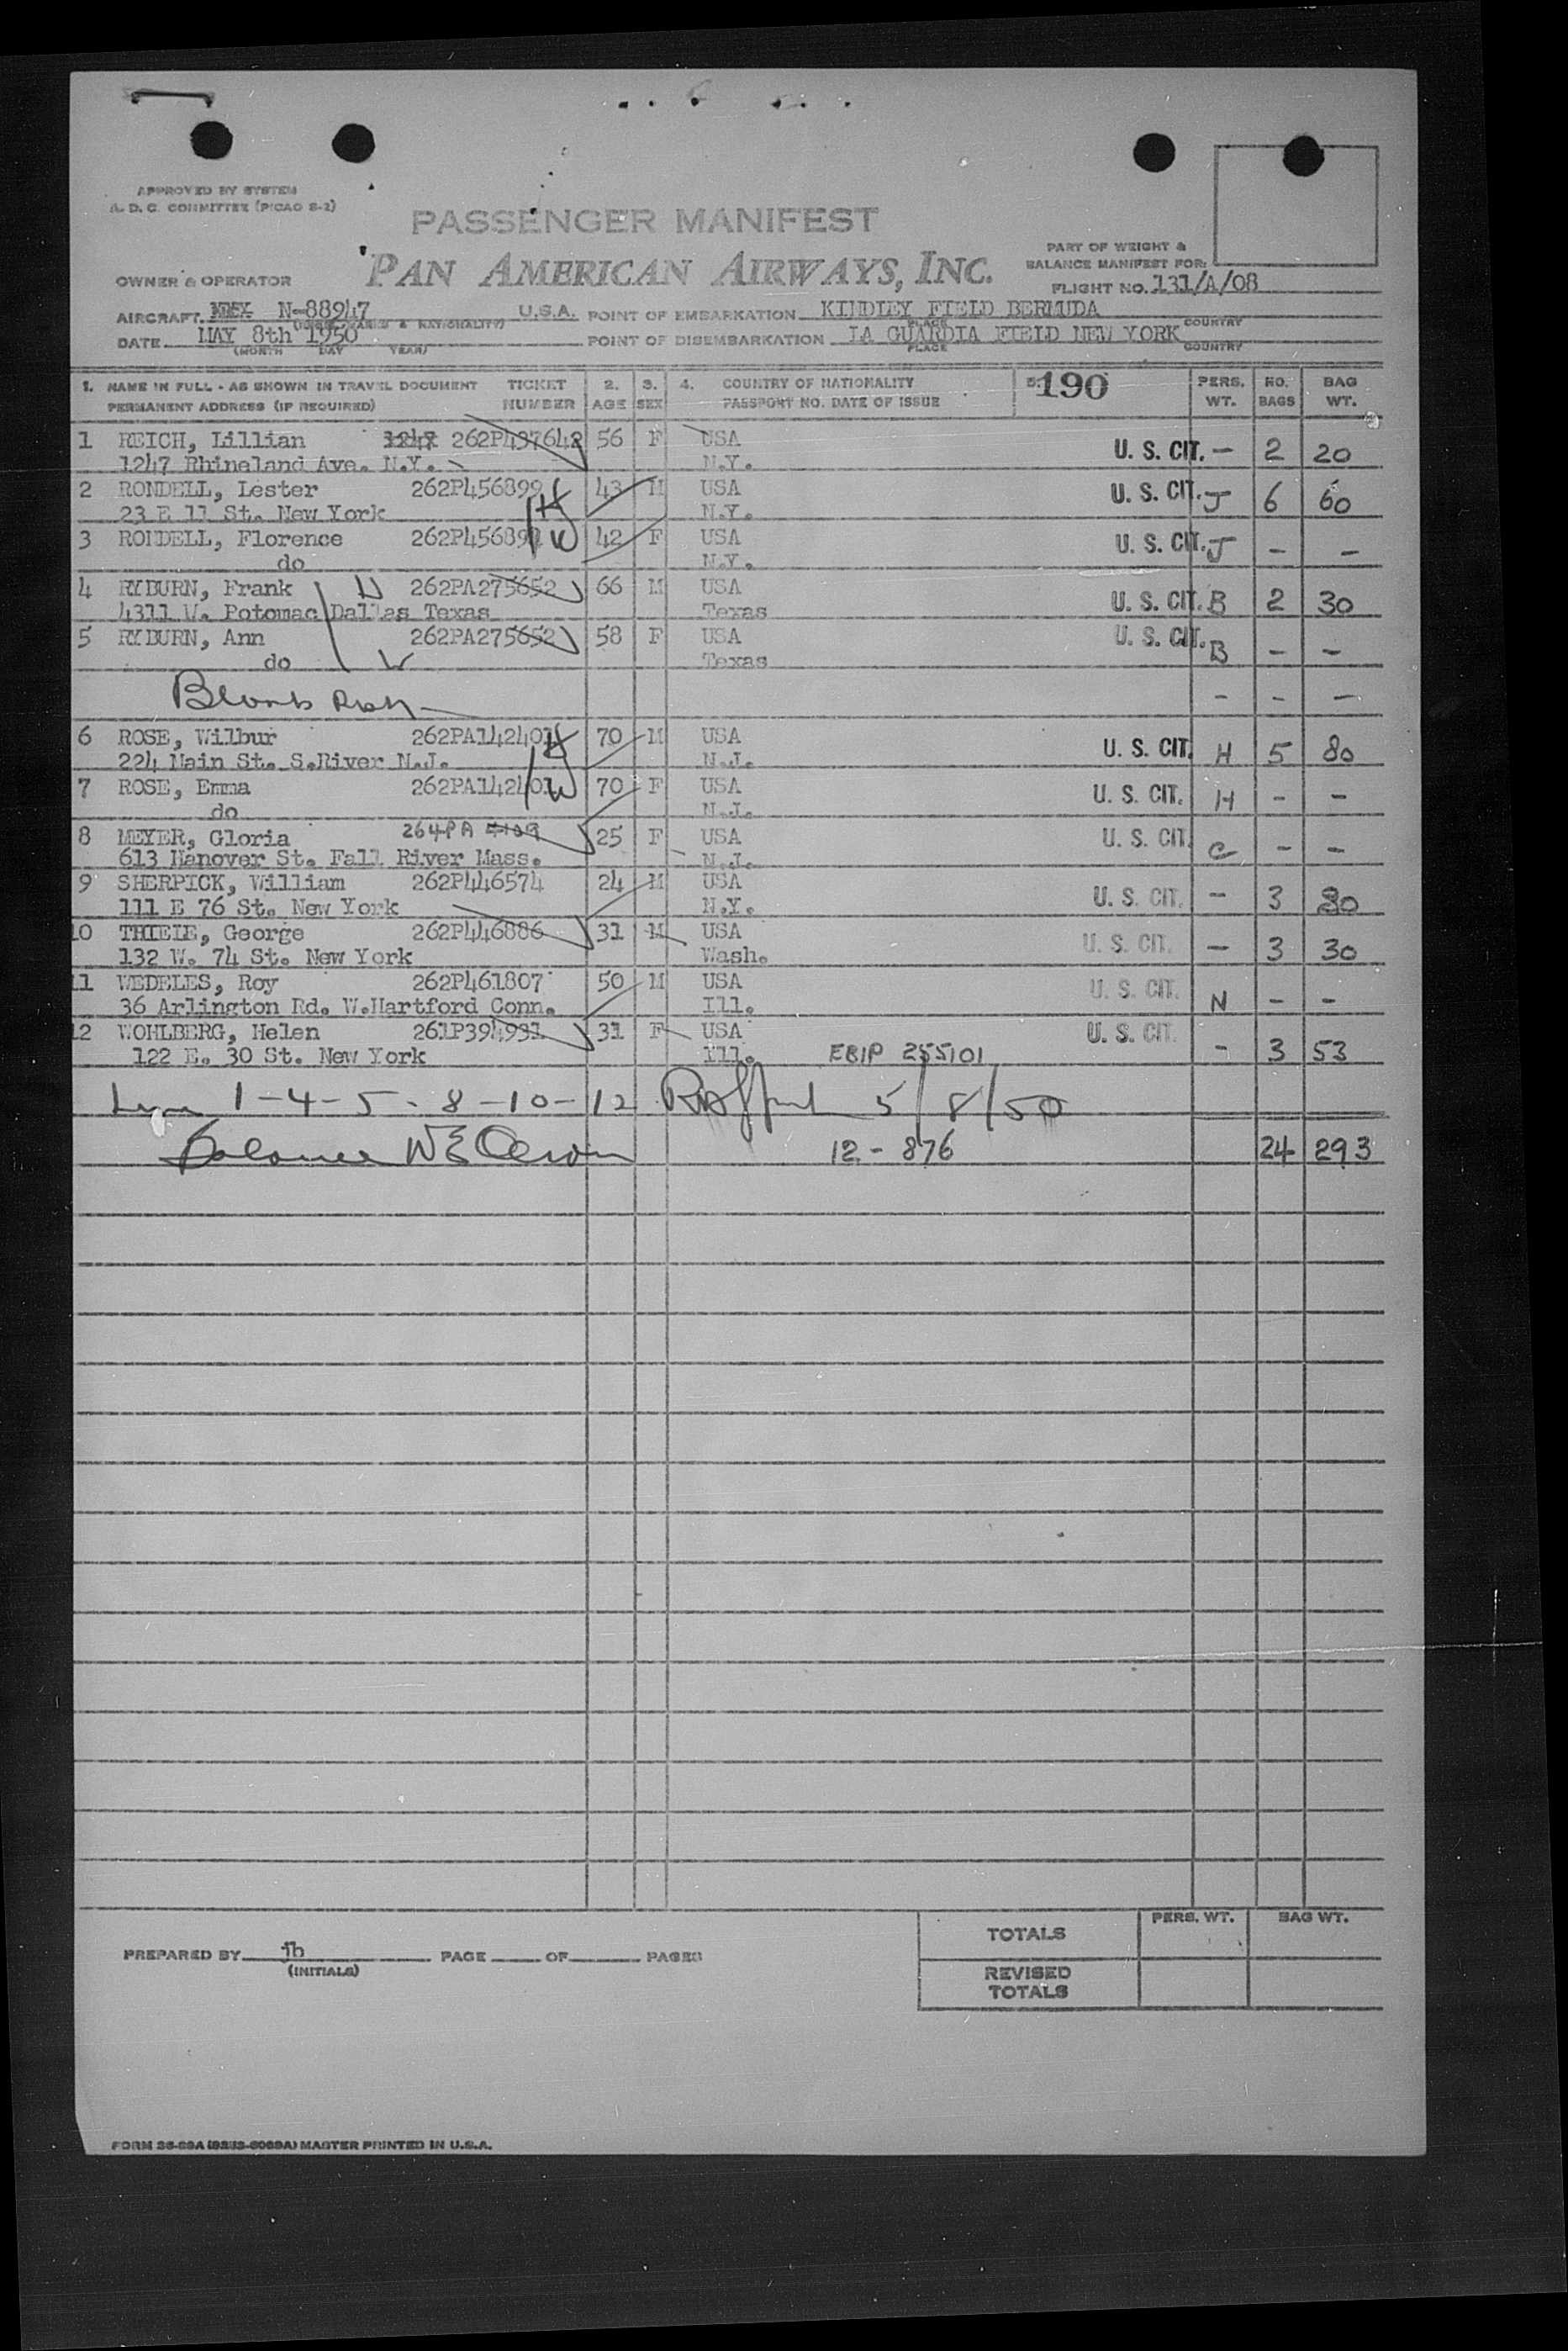 APPROVED BY SYSTEM
A. D. C. COMMITTEE (PICAO S-2)
PASSENGER MANIFEST
PAN AMERICAN AIRWAYS, INC.
PART OF WEIGHT &
BALANCE MANIFEST FOR:
OWNER & OPERATOR
FLIGHT NO. 131/A/08
AIRCRAFT N-88947 U.S.A. POINT OF EMBARKATION KINDLEY FIELD BERMUDA
(MODEL, MARKS & NATIONALITY) PLACE COUNTRY
DATE MAY 8th 1950 POINT OF DISEMBARKATION LA GUARDIA FIELD NEW YORK
(MONTH DAY YEAR) PLACE COUNTRY
1. NAME IN FULL - AS SHOWN IN TRAVEL DOCUMENT TICKET 2. 3. 4. COUNTRY OF NATIONALITY 5. 190 PERS. NO. BAG
PERMANENT ADDRESS (IF REQUIRED) NUMBER AGE SEX PASSPORT NO. DATE OF ISSUE WT. BAGS WT.
1 REICH, Lillian 1247 262P437642 56 F USA U. S. CIT. - 2 20
1247 Rhineland Ave. N.Y. N.Y.
2 RONDELL, Lester 262P456899 43 M USA U. S. CIT. J 6 60
23 E 11 St. New York N.Y.
3 RONDELL, Florence 262P45689 42 F USA U. S. CIT. J - -
do N.Y.
4 RYBURN, Frank W 262PA275652 66 M USA U. S. CIT. B 2 30
4311 W. Potomac Dallas Texas Texas
5 RYBURN, Ann 262PA275652 58 F USA U. S. CIT. B - -
do W Texas
- - -
6 ROSE, Wilbur 262PA142401 H 70 M USA U. S. CIT. H 5 80
224 Main St. S.River N.J. N.J.
7 ROSE, Emma 262PA142401 W 70 F USA U. S. CIT. H - -
do N.J.
8 MEYER, Gloria 264PA 25 F USA U. S. CIT. C - -
613 Hanover St. Fall River Mass. N.J.
9 SHERPICK, William 262P446574 24 M USA U. S. CIT. - 3
111 E 76 St. New York N.Y.
10 THIELE, George 262P446886 31 M USA U. S. CIT. - 3 30
132 W. 74 St. New York Wash.
11 WEDELES, Roy 262P461807 50 M USA U. S. CIT. N - -
36 Arlington Rd. W.Hartford Conn. Ill.
12 WOHLBERG, Helen 261P394931 31 F USA U. S. CIT. - 3 53
122 E. 30 St. New York Ill. EBIP 255101
1-4-5-8-10-12 5/8/50
Balance 12-876 24 293
PREPARED BY jb PAGE OF PAGES
(INITIALS)
TOTALS PERS. WT. BAG WT.
REVISED
TOTALS
MASTER PRINTED IN U.S.A.